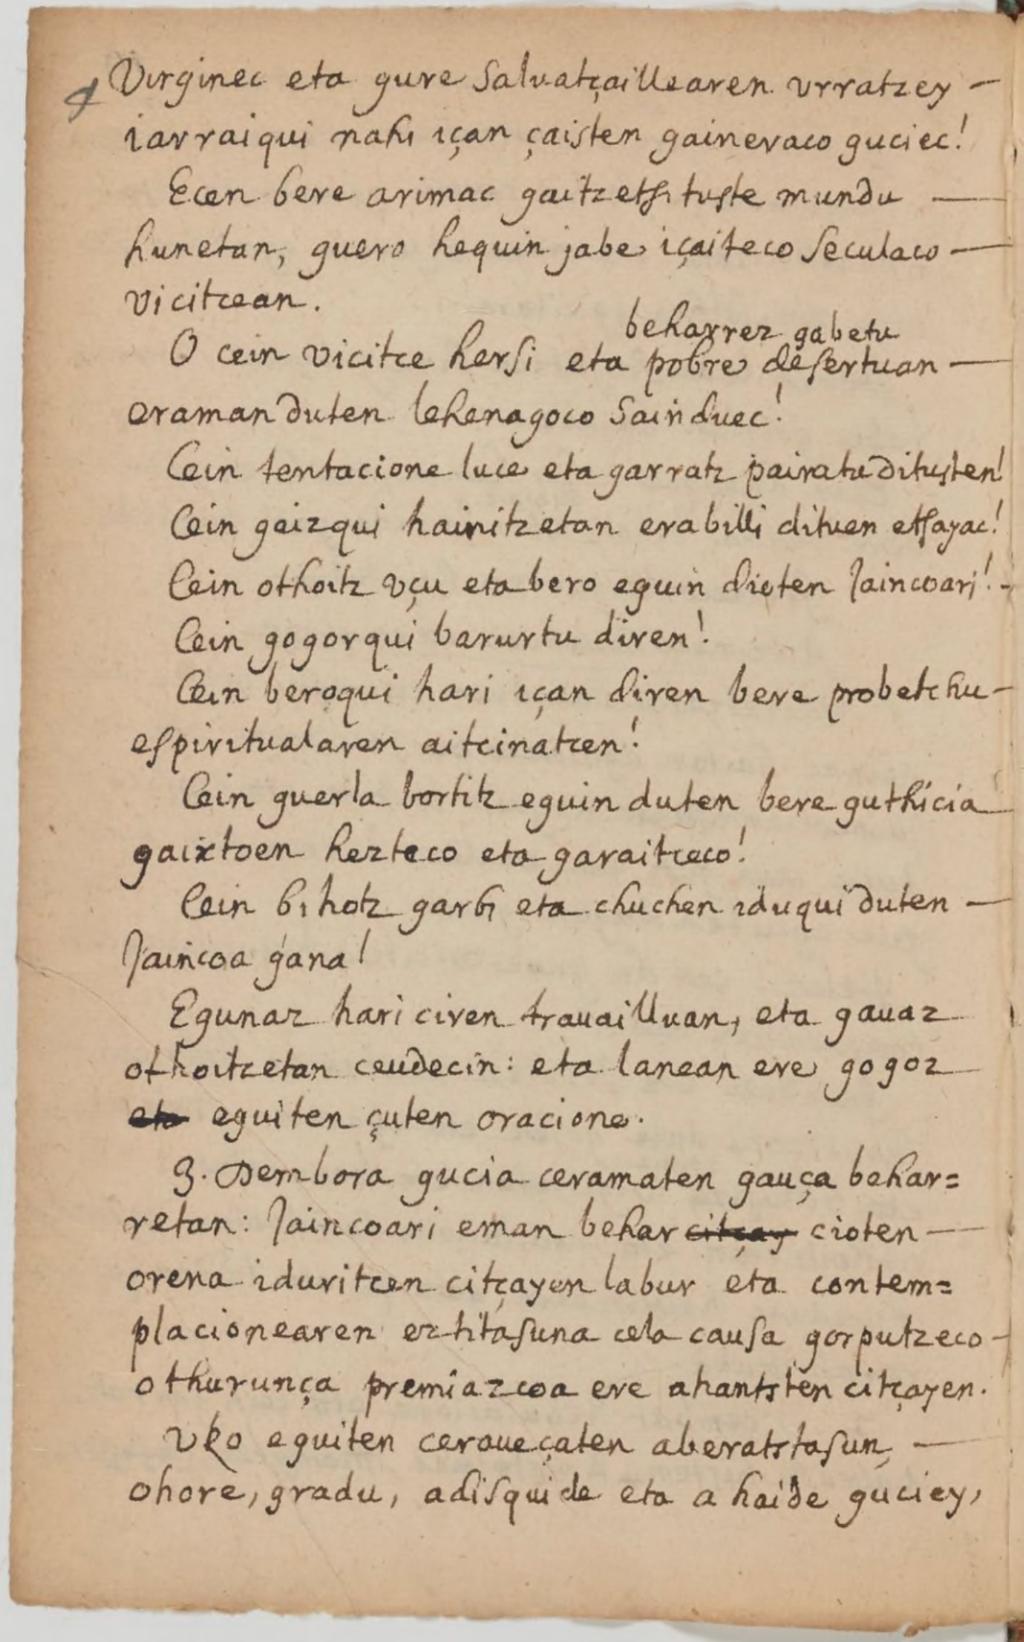 Virginec eta gure Salvatçaillearen vrratzey —
iarraiqui nahi içan çaisten gaineraco guciec!
Ecen bere arimac gaitzetsi tuste mundu —
hunetan, guero hequin jabe içaiteco seculaco —
vicitcean.
beharrez gabetu
O cein vicitce hersi eta pobre desertuan —
eraman duten lehenagoco Sainduec!
Cein tentacione luce eta garratz pairatu dituzten!
Cein gaizqui hainitzetan erabilli dituen etsayac!
Cein othoitz vçu eta bero eguin dioten Jaincoari! -
Cein gogorqui barurtu diren!
Cein beroqui hari içan diren bere probetchu -
espiritualaren aitcinatcen!
Cein guerla bortitz eguin duten bere guthicia
gaixtoen hezteco eta garaitceco!
Cein bihotz garbi eta chuchen iduqui duten —
Jaincoa gana!
Egunaz hari ciren travailluan, eta gauaz
othoitzetan ceudecin: eta lanean ere gogoz
eta eguiten çuten oracione.
3. Dembora gucia ceramaten gauça behar=
retan: Jaincoari eman behar citçay cioten —
orena iduritcen citçayen labur eta contem=
placionearen eztitasuna cela causa gorputzeco -
othurunça premiazcoa ere ahantsten citçayen.
Vko eguiten ceraueçaten aberatstasun, —
ohore, gradu, adisquide eta ahaide guciey,